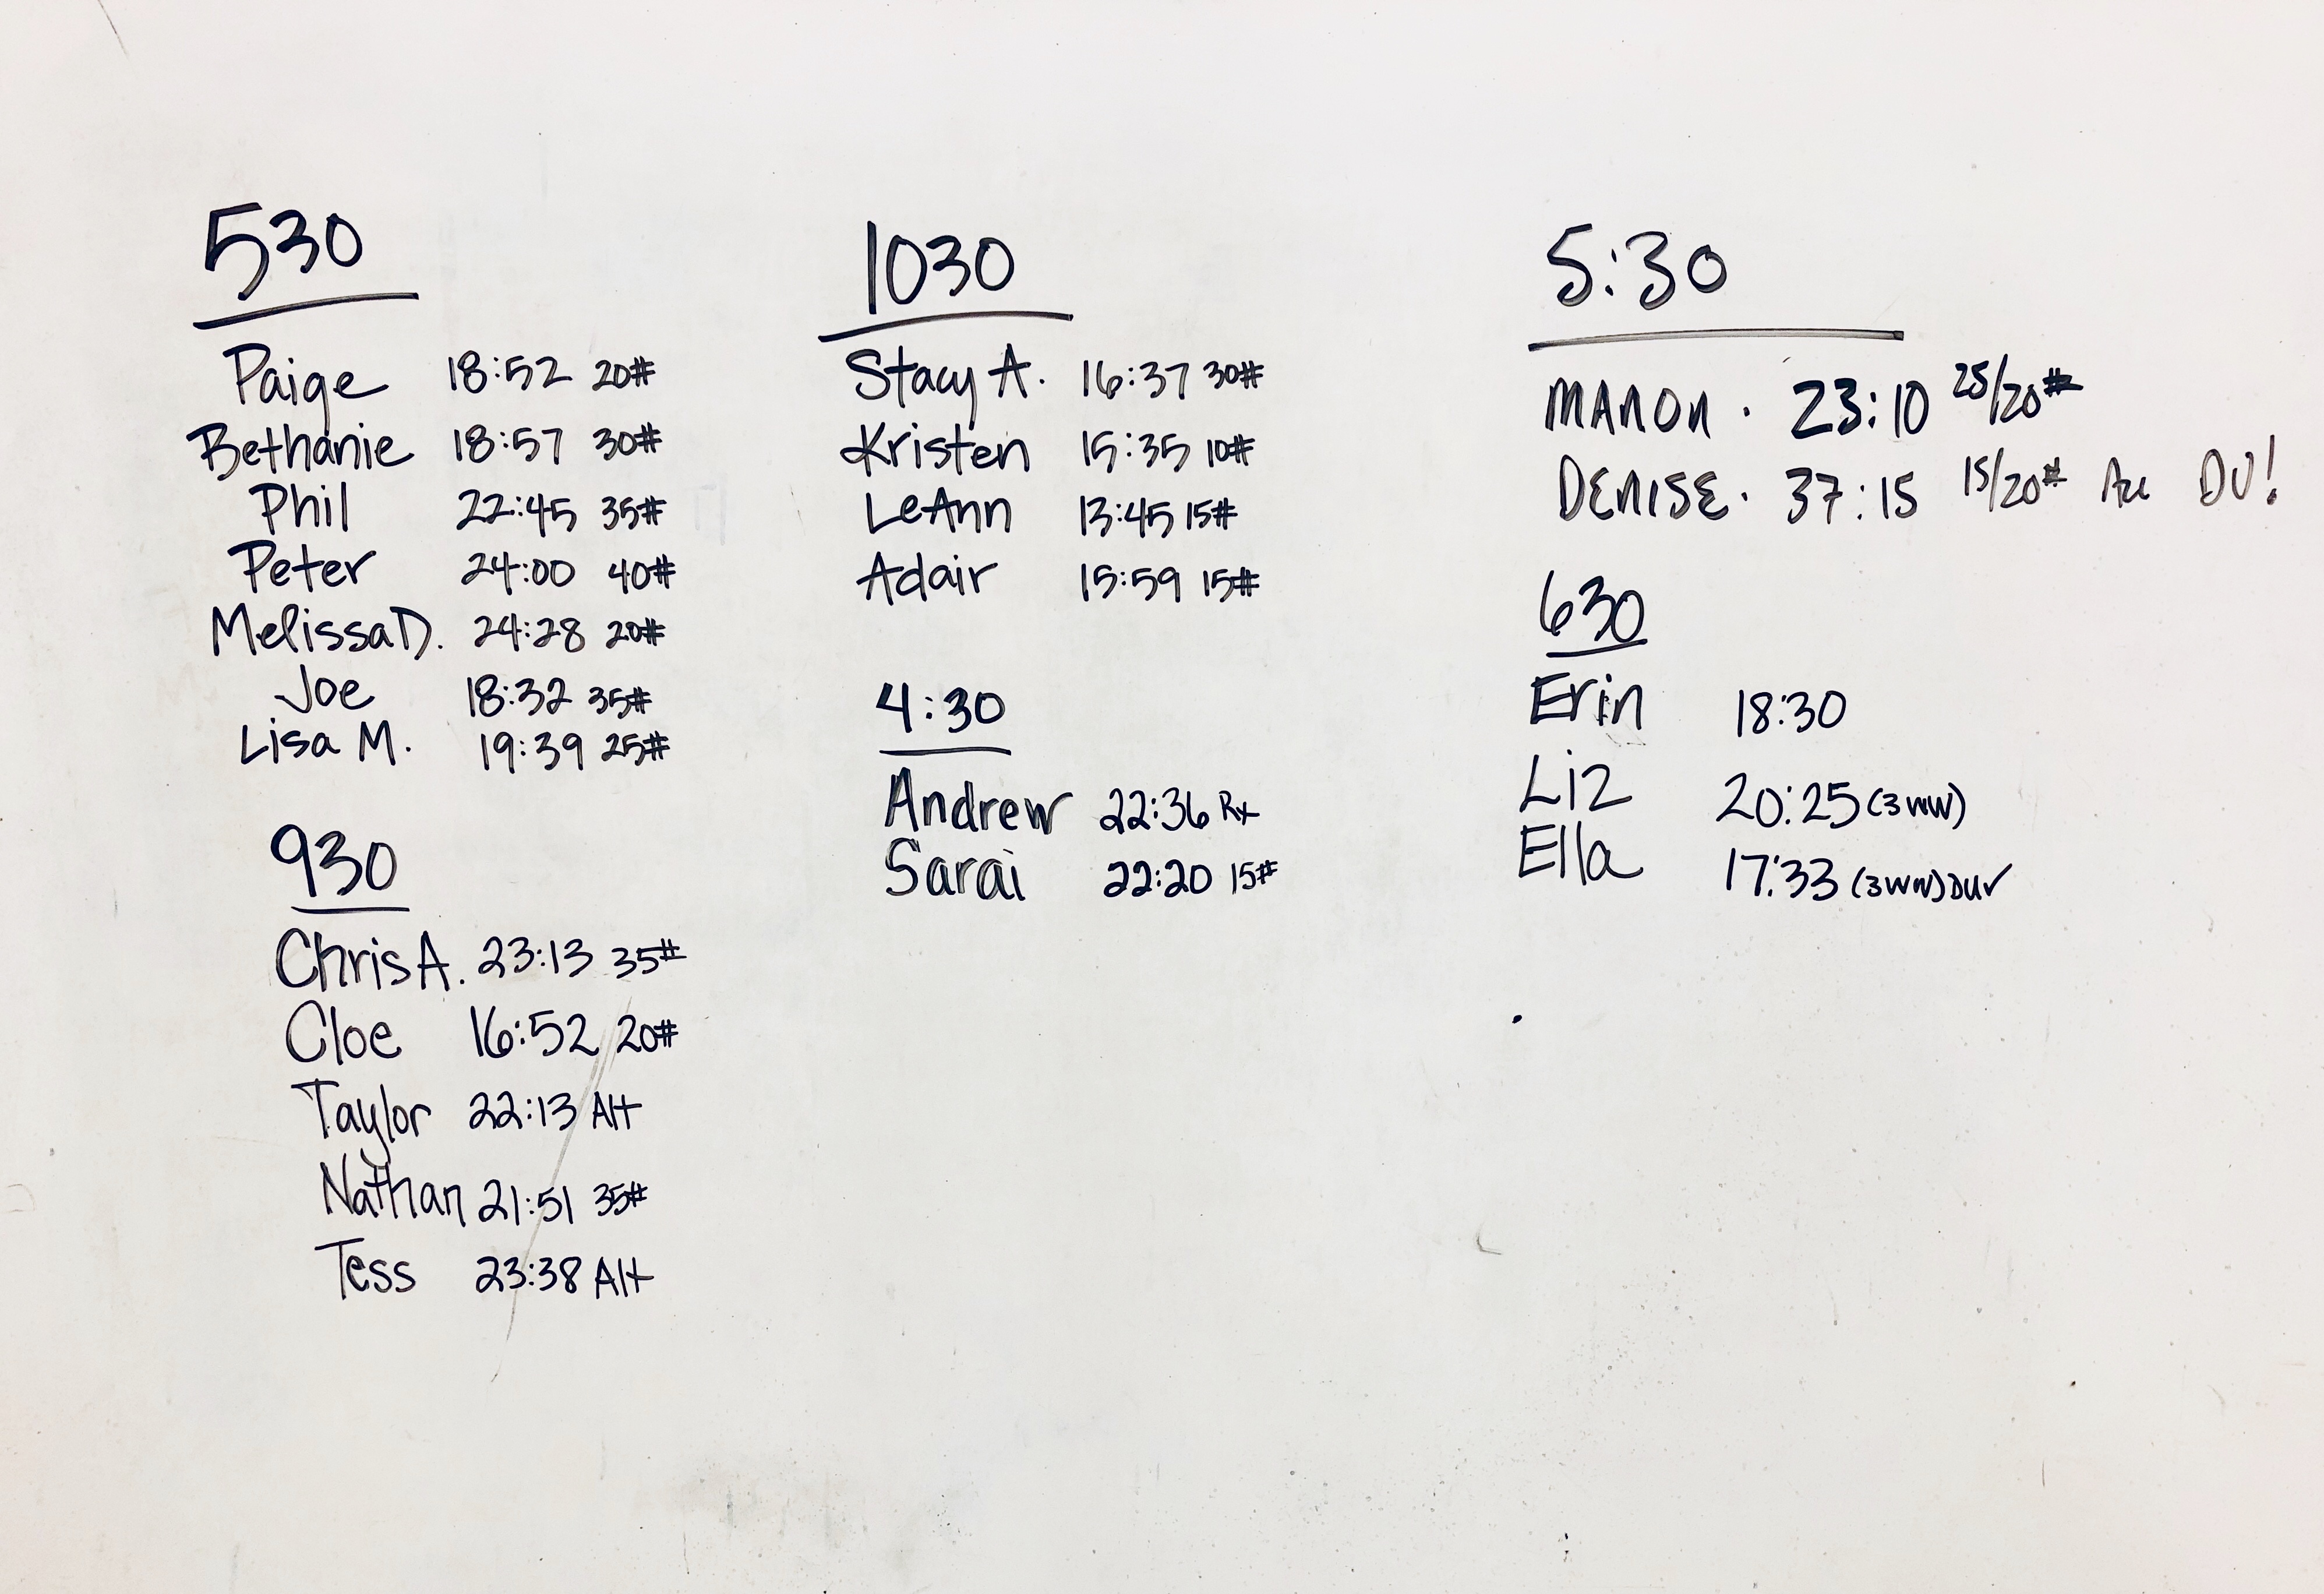 530
Paige 18:52 20#
Bethanie 18:57 30#
Phil 22:45 35#
Peter 24:00 40#
Melissa D. 24:28 20#
Joe 18:32 35#
Lisa M. 19:39 25#
930
Chris A. 23:13 35#
Cloe 16:52 20#
Taylor 22:13 Alt
Nathan 21:51 35#
Tess 23:38 Alt
1030
Stacy A. 16:37 30#
Kristen 15:35 10#
LeAnn 13:45 15#
Adair 15:59 15#
4:30
Andrew 22:36 Rx
Sarai 22:20 15#
5:30
MANON · 23:10 25/20#
DENISE · 37:15 15/20# DU!
630
Erin 18:30
Liz 20:25 (3 WW)
Ella 17:33 (3 WW)